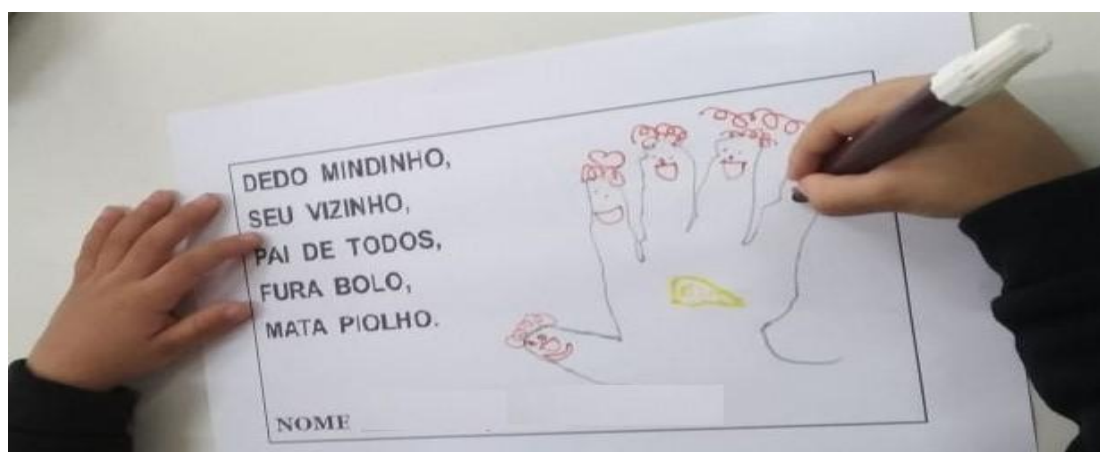 DEDO MINDINHO,
SEU VIZINHO,
PAI DE TODOS,
FURA BOLO,
MATA PIOLHO.
NOME